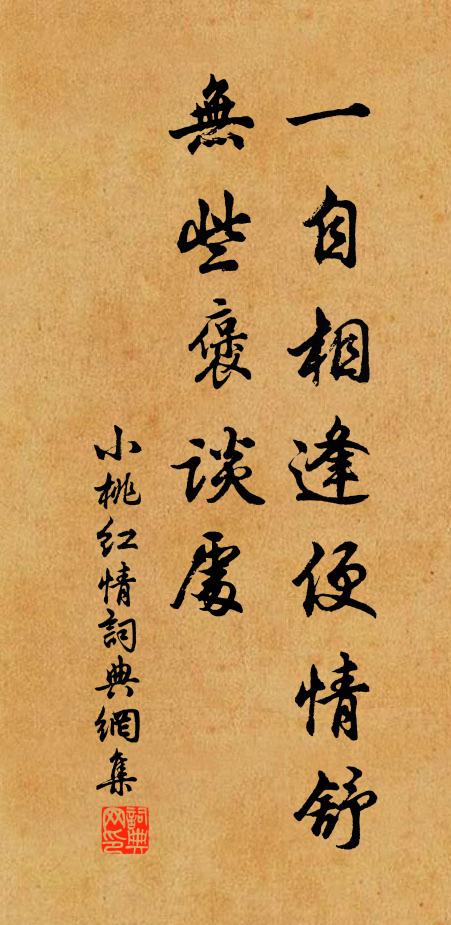 一自相逢便情舒
無些褒談處
小桃紅情詞典網集
詞典网印